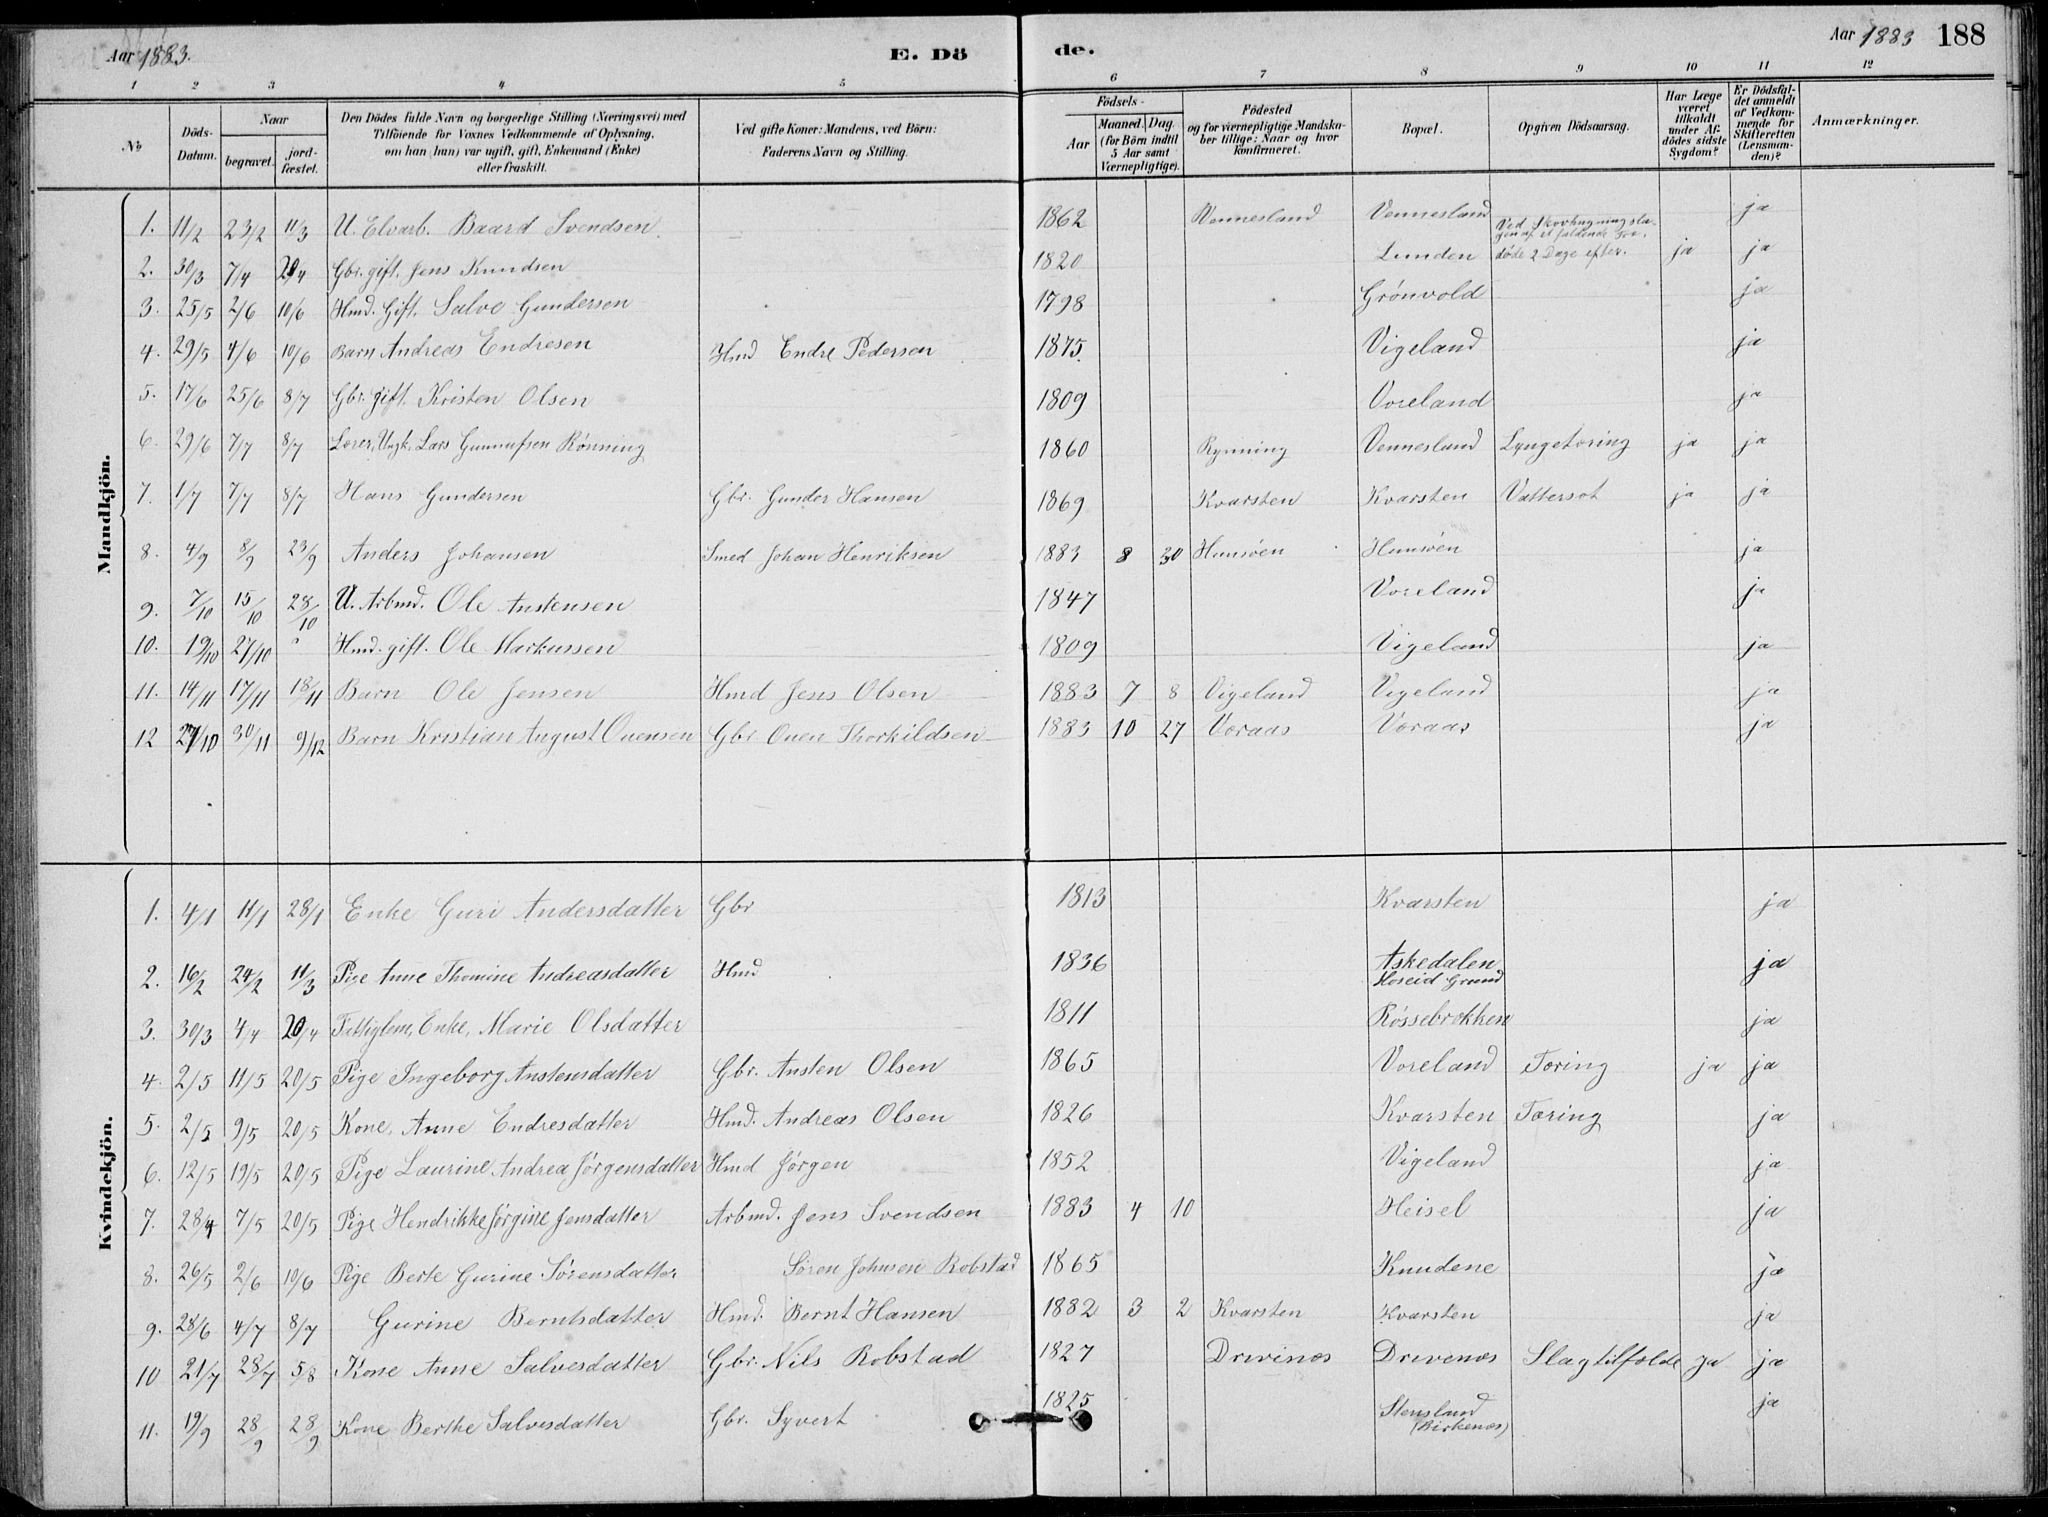 Aar 1883. E. Dö
de. Aar 1883 188
1 2 3 4 5 6 7 8 9 10 11 12
No
Döds-
Datum.
Naar
begravet.
jord-
fæstet.
Den Dödes fulde Navn og borgerlige Stilling (Næringsvei) med
Tilföiende for Voxnes Vedkommende af Oplysning,
om han (hun) var ugift, gift, Enkemand (Enke)
eller fraskilt.
Ved gifte Koner: Mandens, ved Börn:
Faderens Navn og Stilling.
Födsels-
Aar
Maaned. Dag.
(for Börn indtil
5 Aar samt
Værnepligtige).
Födested
og for værnepligtige Mandska-
ber tillige: Naar og hvor
konfirmeret.
Bopæl.
Opgiven Dödsaarsag.
Har Læge
været
tilkaldt
under Af-
dödes sidste
Sygdom?
Er Dödsfal-
det anmeldt
af Vedkom-
mende for
Skifteretten
(Lensman-
den)?
Anmærkninger.
Mandkjön.
1. 11/2 23/2 11/3 U. Elvarb. Baard Svendsen 1862 Vennesland Vennesland Ved Skovhugning sla-
gen af et faldende Træ, ja
2. 30/3 7/4 20/4 Gbr. gift. Jens Knudsen 1820 Lunden døde 2 Dage efter. ja ja
3. 25/5 2/6 10/6 Hmd. Gift. Salve Gundersen 1798 Grönvold ja
4. 29/5 4/6 10/6 Barn Andreas Endresen Hmd Endre Pedersen 1875. Vigeland ja
5. 17/6 25/6 8/7 Gbr. gift. Kristen Olsen 1809 Voreland ja
6. 29/6 7/7 8/7 Lærer, Ungk. Lars Gunnufsen Rönning 1860 Rynning Vennesland Lyngetæring ja ja
7. 1/7 7/7 8/7 Hans Gundersen Gbr. Gunder Hansen 1869 Kvarsten Kvarsten Vattersot ja ja
8. 4/9 8/9 23/9 Anders Johansen Smed Johan Henriksen 1883 8 30 Hunsöen Hunsöen ja
9. 7/10 15/10 28/10 U. Arbmd. Ole Anstensen 1847 Voreland ja
10. 19/10 27/10 " Hmd. gift. Ole Markussen 1809 Vigeland ja
11. 14/11 17/11 18/11 Barn Ole Jensen Hmd Jens Olsen 1883 7 8 Vigeland Vigeland ja
12 27/10 30/11 9/12 Barn Kristian August Ouensen Gbr. Ouen Thorkildsen 1883 10 27 Voraas Voraas ja
Kvindekjön.
1. 4/1 11/1 28/1 Enke Guri Andersdatter Gbr 1813 Kvarsten ja
2. 16/2 24/2 11/3 Pige Anne Thomine Andreasdatter Hmd 1836 Askedalen
Hoseid Grund ja
3. 30/3 4/4 20/4 Fattiglem, Enke, Marie Olsdatter 1811 Røssebrokken ja
4. 2/5 11/5 20/5 Pige Ingeborg Anstensdatter Gbr. Ansten Olsen 1865 Voreland Tæring ja ja
5. 2/5 9/5 20/5 Kone, Anne Endresdatter Hmd. Andreas Olsen 1826 Kvarsten Tæring ja
6. 12/5 19/5 20/5 Pige Laurine Andrea Jörgensdatter Hmd Jörgen 1852 Vigeland ja
7. 28/4 7/5 20/5 Pige Hendrikke Jörgine Jensdatter Arbmd. Jens Svendsen 1883 4 10 Heisel ja
8. 26/5 2/6 10/6 Pige Berte Gurine Sörensdatter Sören Johnsen Robstad 1865 Knudene ja
9. 28/6 4/7 8/7 Gurine Berntsdatter Hmd. Bernt Hansen 1882 3 2 Kvarsten Kvarsten ja
10 21/7 28/7 5/8 Kone Anne Salvesdatter Gbr. Nils Robstad 1827 Drivinæs Drevenæs Slagtilfælde ja ja
11. 19/9 28/9 28/9 Kone Berthe Salvesdatter Gbr. Syvert 1825 Stensland
(Birkenæs) ja